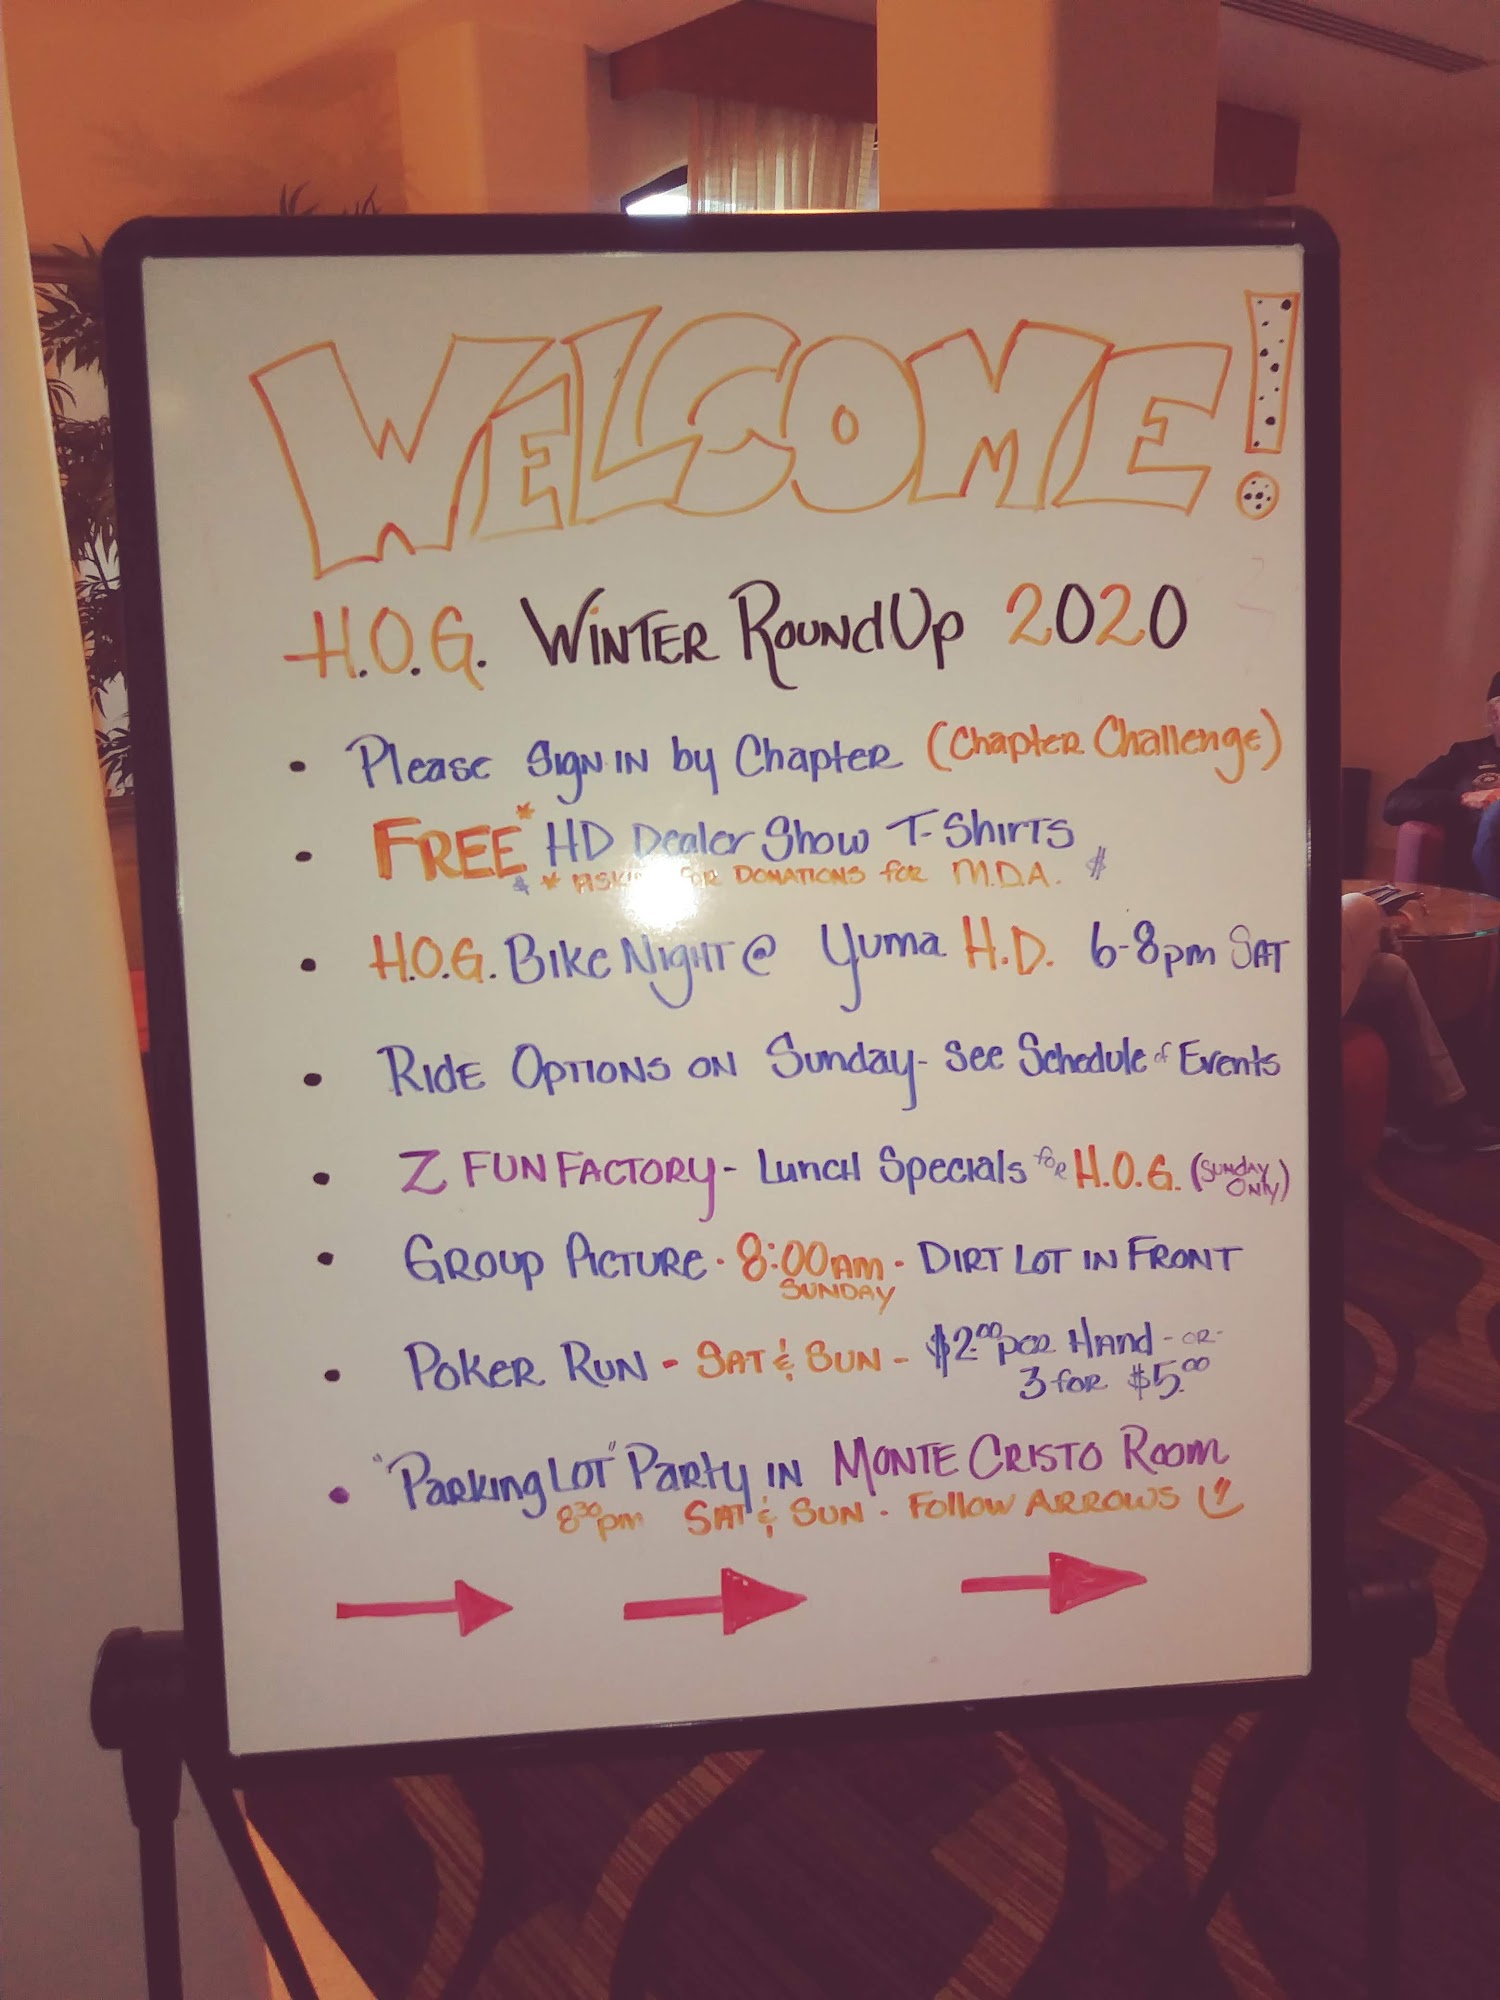 WELCOME!
H.O.G. WINTER ROUNDUP 2020
• Please Sign in by Chapter (Chapter Challenge)
• FREE* HD Dealer Show T-Shirts
* ASKING FOR DONATIONS for M.D.A. $
• H.O.G. Bike Night @ Yuma H.D. 6-8pm SAT
• Ride Options on Sunday - See Schedule of Events
• Z FUN FACTORY - Lunch Specials for H.O.G. (SUNDAY ONLY)
• GROUP PICTURE - 8:00AM - DIRT LOT IN FRONT
SUNDAY
• POKER RUN - SAT & SUN - $2.00 per Hand -OR-
3 for $5.00
• "Parking LOT" Party IN MONTE CRISTO ROOM
8:30pm SAT & SUN - Follow ARROWS